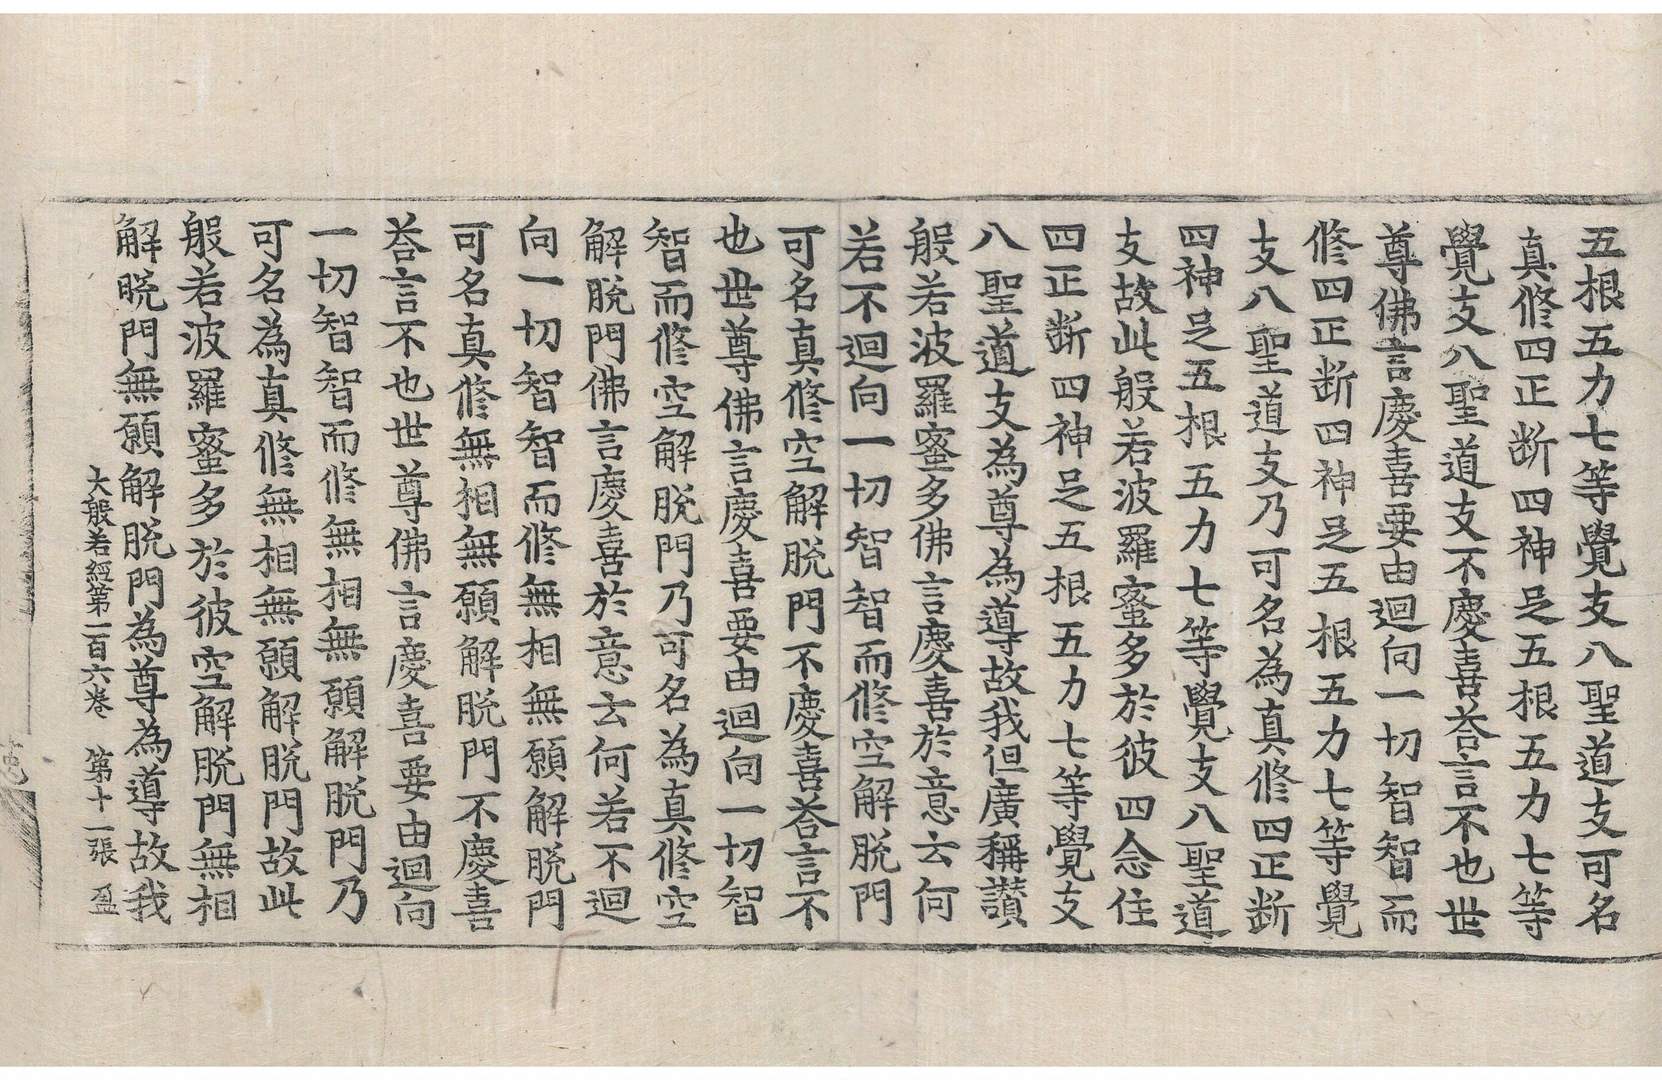 五根五力七等覺支八聖道支可名
真修四正断四神足五根五力七等
覺支八聖道支不慶喜荅言不也世
尊佛言慶喜要由迴向一切智智而
修四正断四神足五根五力七等覺
支八聖道支乃可名為真修四正断
四神足五根五力七等覺支八聖道
支故此般若波羅蜜多於彼四念住
四正断四神足五根五力七等覺支
八聖道支為尊為導故我但廣稱讃
般若波羅蜜多佛言慶喜於意云何
若不迴向一切智智而修空解脫門
可名真修空解脫門不慶喜荅言不
也世尊佛言慶喜要由迴向一切智
智而修空解脫門乃可名為真修空
解脫門佛言慶喜於意云何若不迴
向一切智智而修無相無願解脫門
可名真修無相無願解脫門不慶喜
荅言不也世尊佛言慶喜要由迴向
一切智智而修無相無願解脫門乃
可名為真修無相無願解脫門故此
般若波羅蜜多於彼空解脫門無相
解脫門無願解脫門為尊為導故我
大般若經第一百六卷 第十一張 盈